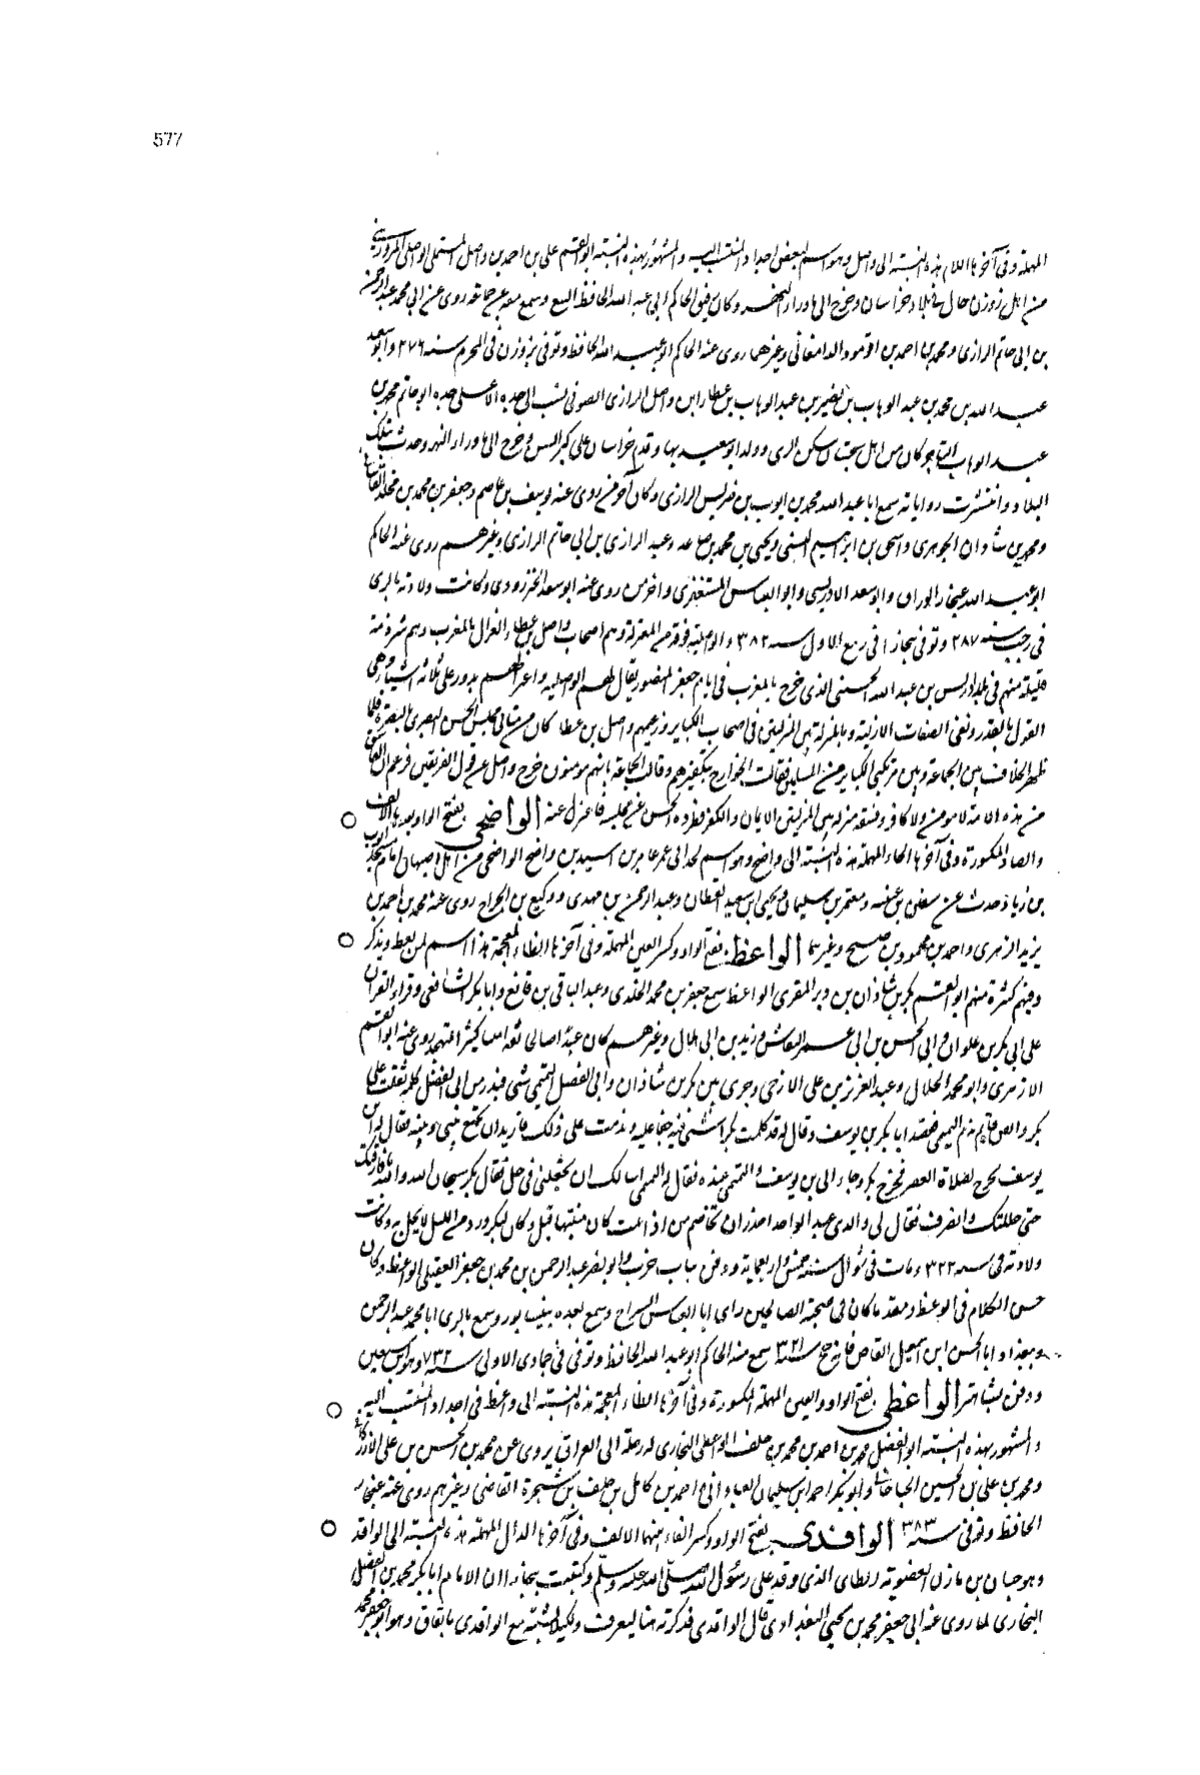 577
المهملة وفي آخرها اللام هذه النسبة الى واصل وهو اسم لبعض اجداد المنتسب اليه والمشهور بهذه النسبة ابو القسم على بن احمد بن واصل المستملى الواصلى الزوزنى
من اهل زوزن جال في بلاد خراسان وخرج الى ماوراء النهر وكان رفيق الحاكم ابى عبد الله الحافظ البيع وسمع معه عن جماعة روى عن ابى محمد عبد الرحمن
بن ابى حاتم الرازى ومحمد بن احمد بن الدامغانى وغيرهما روى عنه الحاكم ابو عبد الله الحافظ وتوفى بزوزن في المحرم سنه ٢٧٦ وابو سعيد
عبد الله بن محمد بن عبد الوهاب بن نصير بن عبد الوهاب بن عطا بن واصل الرازى الصوفى نسب الى جده الاعلى جده ابو حاتم محمد بن
عبد الوهاب كان من اهل سجستان سكن الرى وولد ابو سعيد بها وقدم خراسان على كبر السن وخرج الى ماوراء النهر وحدث بتلك
البلاد وانتشرت رواياته سمع ابا عبد الله محمد بن ايوب بن ضريس الرازى وكان آخر من روى عنه يوسف بن عاصم وجعفر بن محمد بن
ومحمد بن الجوهرى واسحق بن ابراهيم ويحيى بن محمد بن صاعد وعبد الرحمن بن ابى حاتم الرازى وغيرهم روى عنه الحاكم
ابو عبد الله غنجار الوراق وابو سعد الادريسى وابو العباس المستغفرى واخر من روى عنه ابو سعد الكنجرودى وكانت ولادته بالرى
في رجب سنه ٢٨٧ وتوفى ببخارا في ربيع الاول سنه ٣٨٢ والواصلية فرقة من المعتزلة وهم اصحاب واصل بن عطاء الغزال بالمغرب وهم شرذمة
قليلة منهم في بلد ادريس بن عبد الله الحسنى الذى خرج بالمغرب في ايام جعفر المنصور يقال لهم الواصلية واعتزالهم يدور على ثلاثة اشياء وهى
القول بالقدر ونفى الصفات الازلية وبالمنزلة بين المنزلتين في اصحاب الكباير وزعيمهم واصل بن عطا كان من مجلس الحسن البصرى بالبصرة فلما
ظهر الخلاف بين الجماعة وبين مرتكبى الكباير من المسلمين فقالت الخوارج بتكفيرهم وقالت الجماعة بانهم مومنون خرج واصل عن قول الفريقين فزعم ان الفاسق
من هذه الامة لا مومن ولا كافر وفسقه منزلة بين المنزلتين الايمان والكفر فطرده الحسن عن مجلسه فاعتزل عنه الواضحى بفتح الواو بعدها الالف
والضاد المكسورة وفى آخرها الحاء المهملة هذه النسبة الى واضح وهو اسم لجد ابى عمر عامر بن اسيد بن واضح الواضحى من اهل اصبهان امام مسجد ايوب
بن زياد حدث عن سفين بن عيينه ومعتمر بن سليمان ويحيى بن سعيد القطان وعبد الرحمن بن مهدى ووكيع بن الجراح روى عنه محمد بن احمد بن
يزيد الزهرى واحمد بن محمود بن صبيح وغيرهما الواعظ بفتح الواو وكسر العين المهملة وفى آخرها الظاء المعجمة هذا اسم لمن يعظ ويذكر
وفيهم كثرة منهم ابو القسم بكر بن شاذان بن المقرى الواعظ سمع جعفر بن محمد الخلدى وعبد الباقى بن قانع وابا بكر الشافعى وقراء القران
على ابى بكر بن علوان وابى الحسن بن ابى عمر النقاش وزيد بن ابى بلال وغيرهم كان عبدا صالحا ثقة امينا كثير التهجد روى عنه ابو القسم
الازهرى وابو محمد الخلال وعبد العزيز بن على الازجى وجرى بين بكر بن شاذان وابى الفضل التميمى شى فبدر من ابى الفضل كلمة ثقلت على
بكر وانصرفا ثم ندم التميمى فقصد ابا بكر بن يوسف وقال له قد كلمت بكرا بشى فيه جفا عليه وندمت على ذلك فاريد ان تجمع بينى وبينه فقال له ابن
يوسف يخرج لصلاة العصر فخرج بكر وجاء الى بن يوسف والتميمى عنده فقال له التميمى اسالك ان تجعلنى في حل فقال بكر سبحان الله والله ما فارقتك
حتى حللتك وانصرف فقال لى والدى عبد الواحد احذر ان تخاصم من اذا نمت كان منتبها قيل وكان لبكر ورد من الليل لا يخل به وكانت
ولادته في سنه ٣٢٢ ومات في شوال سنه خمس واربعماية ودفن بباب حرب وابو نصر عبد الرحمن بن محمد بن جعفر العقيلى الواعظ وكان
حسن الكلام في الوعظ ومقدما كان في صحبة الصالحين راى ابا العباس السراج وسمع بعده بنيسابور وسمع بالرى ابا محمد عبد الرحمن
وببغداد ابا الحسن ابن اسمعيل القاص فانه حج سنه ٣٢١ سمع منه الحاكم ابو عبد الله الحافظ وتوفى في جمادى الاولى سنه وهو ابن سبعين
ودفن الواعظى بفتح الواو والعين المهملة المكسورة وفى آخرها الظاء المعجمة هذه النسبة الى واعظ في اجداد المنتسب اليه
والمشهور بهذه النسبة ابو الفضل محمد بن احمد بن محمد بن خلف الواعظى البخارى له رحلة الى العراق يروى عن محمد بن الحسن بن على
ومحمد بن على بن الحسين وابو بكر احمد بن سليمان العبادانى واحمد بن كامل بن خلف بن شجرة القاضى وغيرهم روى عنه غنجار
الحافظ وتوفى سنه ٣٨٣ الوافدى بفتح الواو وكسر الفاء بينهما الالف وفى آخرها الدال المهملة هذه النسبة الى الوافد
وهو حيان بن مازن العضوبة الطاى الذى وفد على رسول الله صلى الله عليه وسلم وكتبت ببخارا ان الامام ابا بكر محمد بن الفضل
البخارى لما روى عنه ابى جعفر محمد بن يحيى البغدادى قال الوافدى فذكرته هنا ليعرف ولكيلا يشتبه مع الواقدى بالقاف وهو ابو جعفر محمد